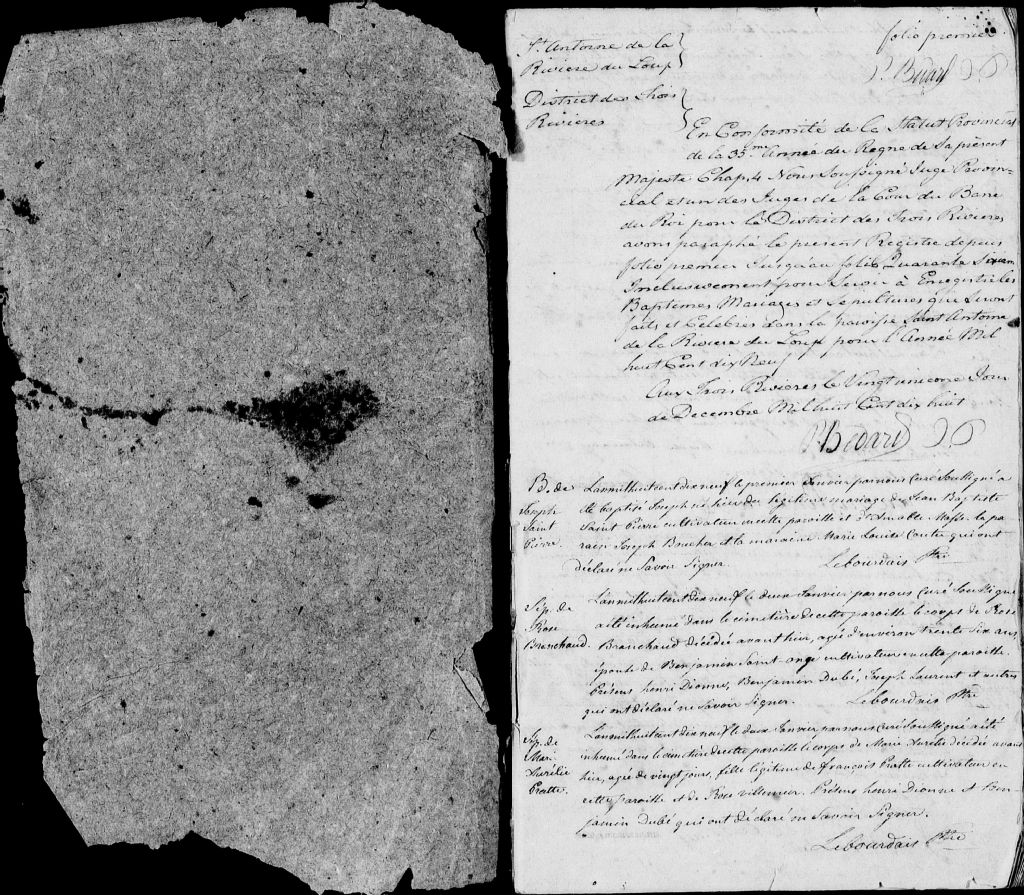 folio premier
P. Bedard J P
St. Antoine de la
Riviere du Loup
District des Trois
Rivieres
En Conformité de la Statut Provincial
de la 35.me Année du Regne de Sa présent
Majeste Chap. 4 Nous Soussigné Juge Provin-
cial et un des Juges de la Cour du Banc
du Roi pour le District des Trois Rivieres
avons paraphé le present Registre depuis
folio premier Jusqu'au folio Quarante
Inclusivement pour Servir à Enregistrer les
Baptemes Mariages et Sepultures qui Seront
faits et Celebrés dans la paroisse Saint Antoine
de la Riviere du Loup pour l'Année Mil
huit Cent dix Neuf
Aux Trois Rivieres le Vingt unieme Jour
de Decembre Mil huit Cent dix huit
P. Bedard J P
B. de
Joseph
Saint
Pierre.
L'an mil huit cent dix neuf le premier Janvier par nous Curé Soussigné a
été baptisé Joseph né hier du légitime mariage de Jean Baptiste
Saint Pierre cultivateur en cette paroisse et d' Amable Masse. le pa
rain Joseph Brucher et la maraine Marie Louise Coutu qui ont
déclaré ne Savoir Signer. Lebourdais Ptre
Sep. de
Rose
Branchaud.
L'an mil huit cent dix neuf le deux Janvier par nous curé Soussigné
a été inhumé dans le cimetière de cette paroisse le corps de Rose
Branchaud décédée avant hier, agée d'environ trente six ans
épouse de Benjamin Saint-onge cultivateur en cette paroisse.
Présens henri Dionne, Benjamin Dubé, Joseph Laurent et autres
qui ont déclaré ne Savoir Signer. Lebourdais Ptre
Sep. de
Marie
Aurélie
Pratte.
L'an mil huit cent dix neuf le deux Janvier par nous curé Soussigné a été
inhumé dans le cimetière de cette paroisse le corps de Marie Aurélie décédée avant
hier, agée de vingt jours, fille légitime de françois Pratte cultivateur en
cette paroisse et de Rose villemur. Présens henri Dionne et Ben
jamin Dubé qui ont déclaré ne Savoir Signer.
Lebourdais Ptre